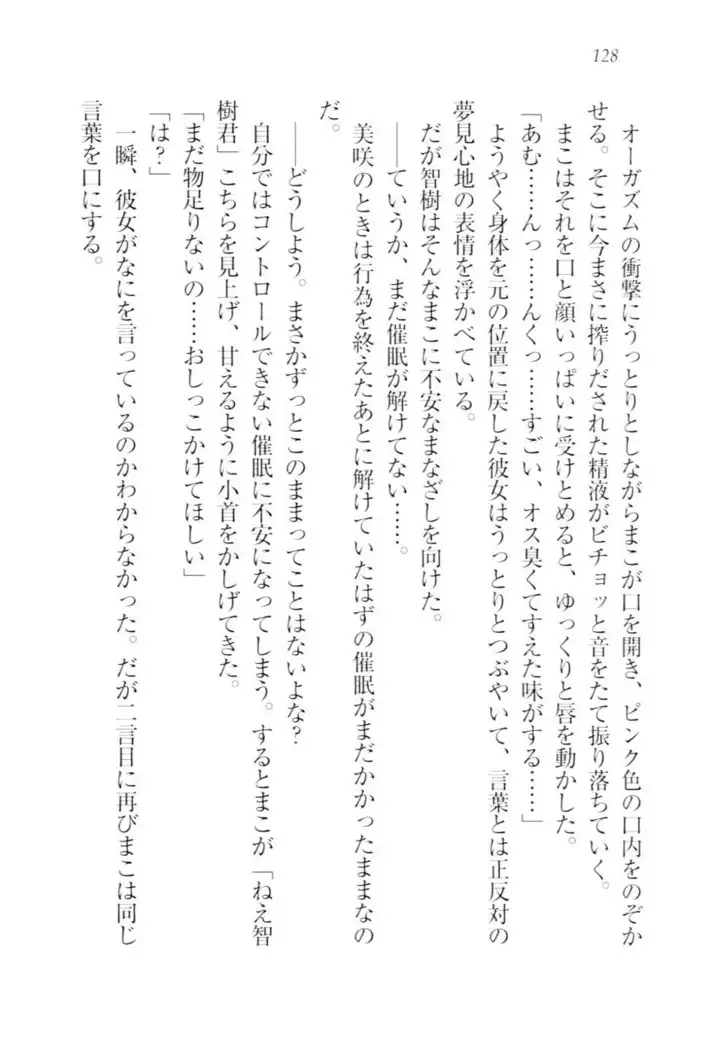 128
オーガズムの衝撃にうっとりとしながらまこが口を開き、ピンク色の口内をのぞか
せる。そこに今まさに搾りだされた精液がビチョッと音をたて振り落ちていく。
まこはそれを口と顔いっぱいに受けとめると、ゆっくりと唇を動かした。
「あむ……んっ……んくっ……すごい、オス臭くてすえた味がする……」
ようやく身体を元の位置に戻した彼女はうっとりとつぶやいて、言葉とは正反対の
夢見心地の表情を浮かべている。
だが智樹はそんなまこに不安なまなざしを向けた。
――ていうか、まだ催眠が解けてない……。
美咲のときは行為を終えたあとに解けていたはずの催眠がまだかかったままなの
だ。
――どうしよう。まさかずっとこのままってことはないよな?
自分ではコントロールできない催眠に不安になってしまう。するとまこが「ねえ智
樹君」こちらを見上げ、甘えるように小首をかしげてきた。
「まだ物足りないの……おしっこかけてほしい」
「は?」
一瞬、彼女がなにを言っているのかわからなかった。だが二言目に再びまこは同じ
言葉を口にする。